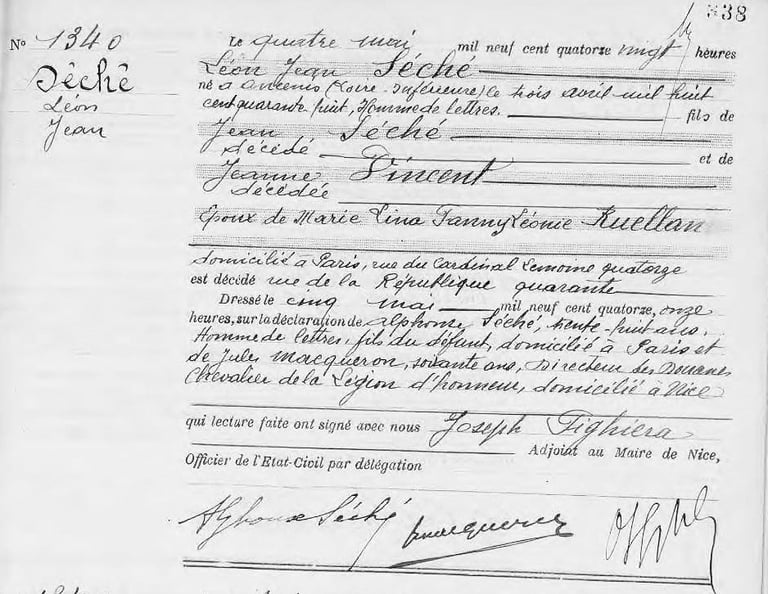 N° 1340
Séché
Léon
Jean
338
Le quatre mai mil neuf cent quatorze vingt heures
Léon Jean Séché
né à Ancenis (Loire-Inférieure) le trois avril mil huit
cent quarante huit, Homme de lettres. fils de
Jean Séché
décédé et de
Jeanne Vincent
décédée
Epoux de Marie Lina Fanny Léonie Ruellan
domicilié à Paris, rue du Cardinal Lemoine quatorze
est décédé rue de la République quarante
Dressé le cinq mai mil neuf cent quatorze, onze
heures, sur la déclaration de Alphonse Séché, trente-huit ans,
Homme de lettres, fils du défunt, domicilié à Paris et
de Jules Macqueron, soixante ans, Directeur des Douanes
Chevalier de la Légion d'honneur, domicilié à Nice
qui lecture faite ont signé avec nous Joseph Fighiera
Adjoint au Maire de Nice,
Officier de l'Etat-Civil par délégation
Alphonse Séché Macqueron